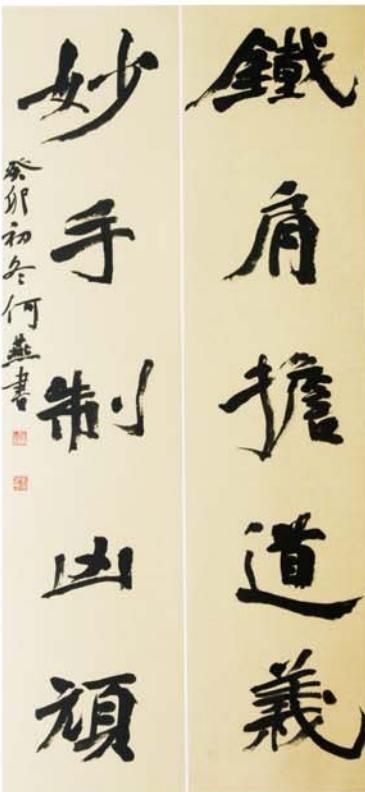 鐵肩擔道義
妙手制凶頑
癸卯初冬何燕書